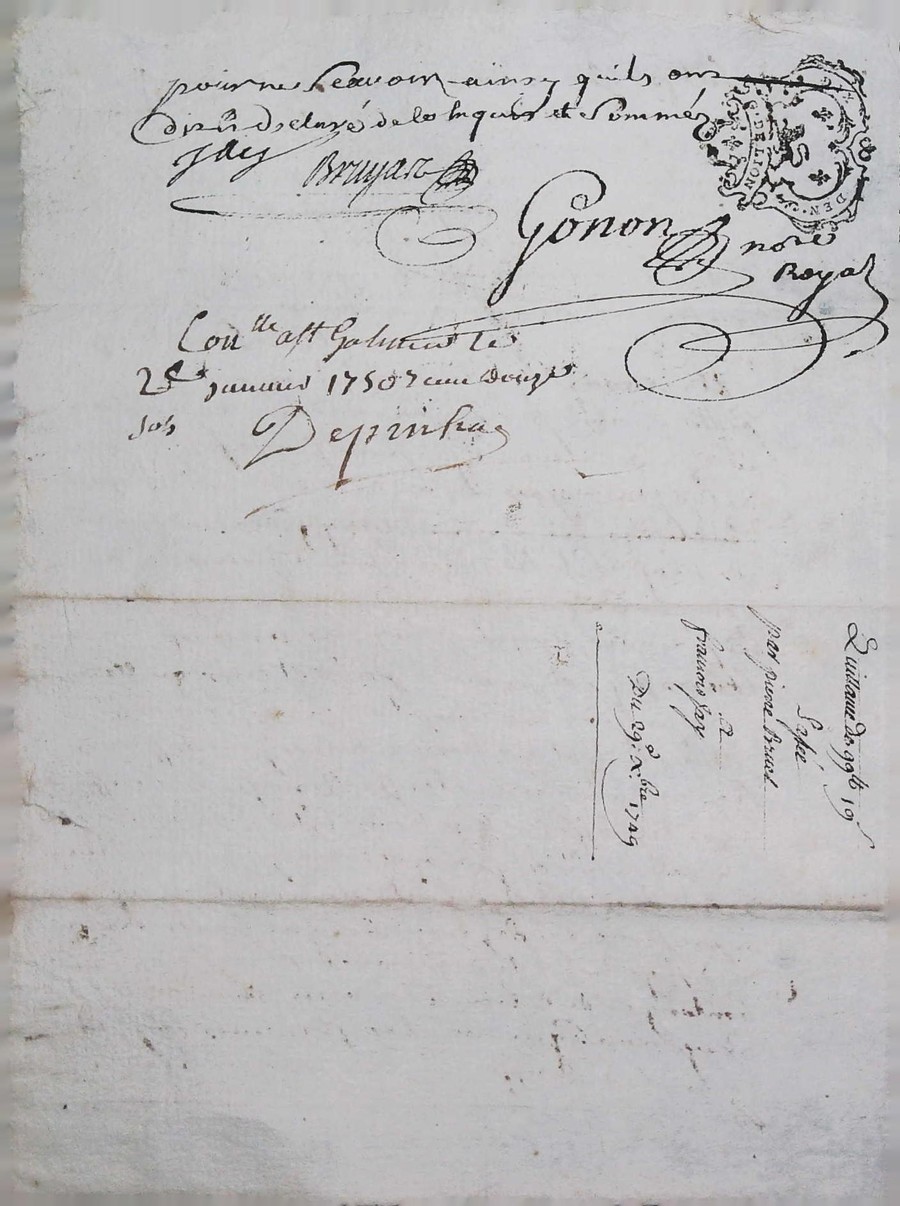 pour ne Scavoir ainsy quils ont
dit et declaré de ce Enquis et Sommés
Jay Bruyas
Gonon notre
Royal
G. DE LION
DEN.
Con.lle a St Galmier le
2e Janvier 1750 Reçu Douze
sols
Depinhac
Quittance de 99lt 19s
Passé
par pierre Bruat
à
françois Jay
Du 29e Xbre 1749